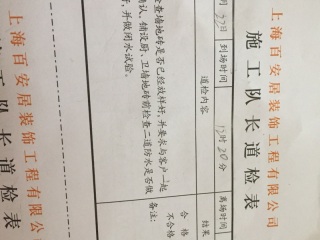 上海百安居装饰工程有限公司
施工队长道检表
22日
到场时间
13时20分
离场时间
道检内容
结果
检查墙地砖是否已经放样好,并要求与客户一起
确认,铺设厨、卫墙地砖前检查二道防水是否做
好,并做闭水试验。
合格
不合格
备注:
上海百安居装饰工程有限公司
施工队长道检表